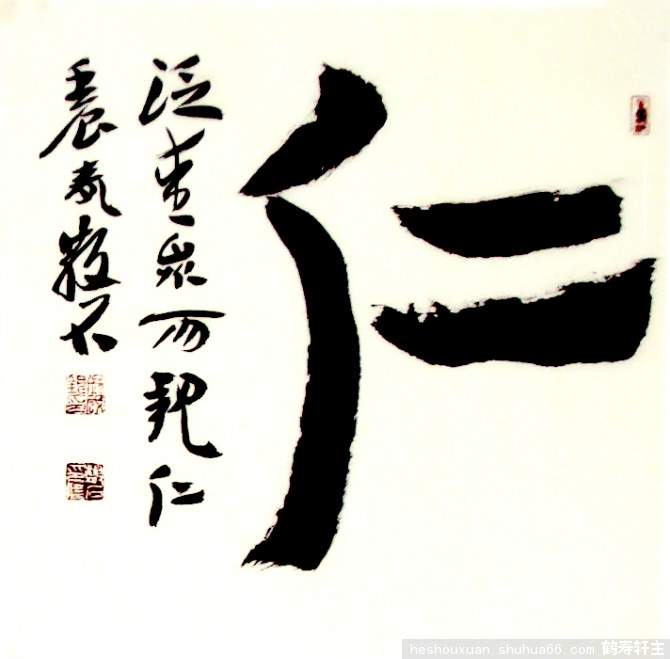 仁
泛爱众而親仁
壬辰春
heshouxuan.shuhua66.com 鹤寿轩主